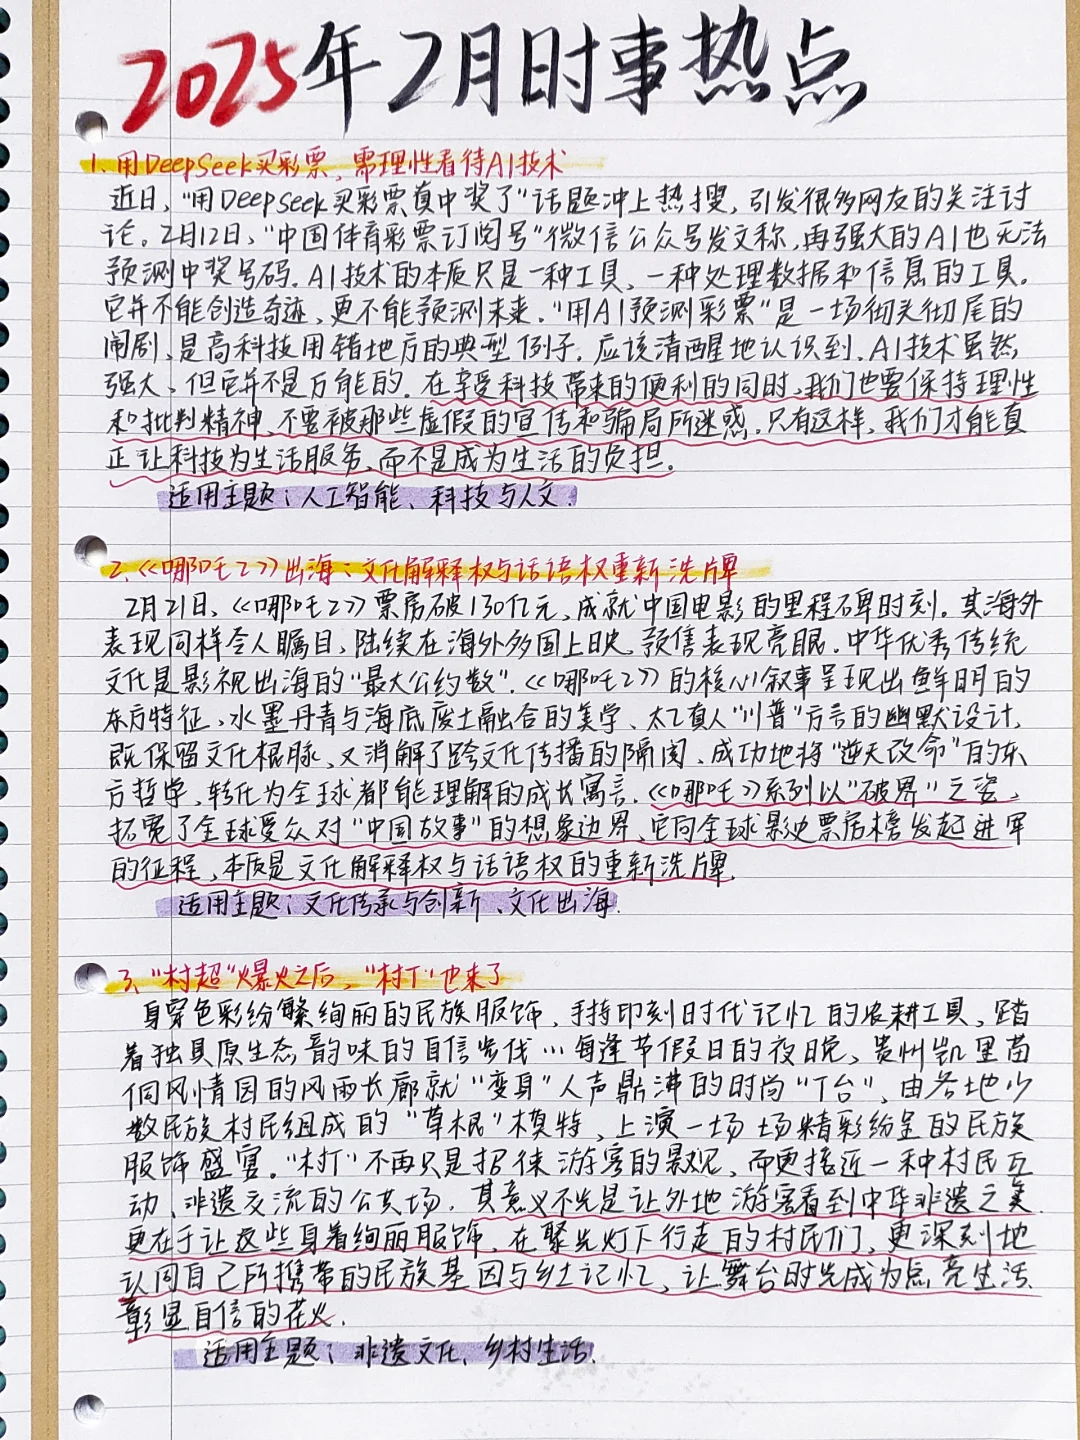 2025年2月时事热点
1.用DeepSeek买彩票，需理性看待AI技术
近日，“用DeepSeek买彩票真中奖了”话题冲上热搜，引发很多网友的关注讨
论。2月12日，“中国体育彩票订阅号”微信公众号发文称，再强大的AI也无法
预测中奖号码。AI技术的本质只是一种工具，一种处理数据和信息的工具。
它并不能创造奇迹，更不能预测未来。“用AI预测彩票”是一场彻头彻尾的
闹剧，是高科技用错地方的典型例子。应该清醒地认识到，AI技术虽然
强大，但它并不是万能的。在享受科技带来的便利的同时，我们也要保持理性
和批判精神，不要被那些虚假的宣传和骗局所迷惑。只有这样，我们才能真
正让科技为生活服务，而不是成为生活的负担。
适用主题：人工智能、科技与人文.
2.《哪吒2》出海：文化解释权与话语权重新洗牌
2月21日，《哪吒2》票房破130亿元，成就中国电影的里程碑时刻。其海外
表现同样令人瞩目，陆续在海外多国上映，预售表现亮眼。中华优秀传统
文化是影视出海的“最大公约数”.《哪吒2》的核心叙事呈现出鲜明的
东方特征，水墨丹青与海底废土融合的美学、太乙真人“川普”方言的幽默设计，
既保留文化根脉，又消解了跨文化传播的隔阂，成功地将“逆天改命”的东
方哲学，转化为全球都能理解的成长寓言.《哪吒》系列以“破界”之姿，
拓宽了全球受众对“中国故事”的想象边界，它向全球影史票房榜发起进军
的征程，本质是文化解释权与话语权的重新洗牌.
适用主题：文化传承与创新、文化出海.
3、“村超”爆火之后，“村T”也来了
身穿色彩纷繁绚丽的民族服饰，手持印刻时代记忆的农耕工具，踏
着独具原生态韵味的自信步伐…每逢节假日的夜晚，贵州凯里苗
侗风情园的风雨长廊就“变身”人声鼎沸的时尚“T台”，由各地少
数民族村民组成的“草根”模特，上演一场场精彩纷呈的民族
服饰盛宴。“村T”不再只是招徕游客的景观，而更接近一种村民互
动、非遗交流的公共场。其意义不光是让外地游客看到中华非遗之美，
更在于让这些身着绚丽服饰，在聚光灯下行走的村民们，更深刻地
认同自己所携带的民族基因与乡土记忆，让舞台时光成为点亮生活、
彰显自信的花火.
适用主题：非遗文化、乡村生活.